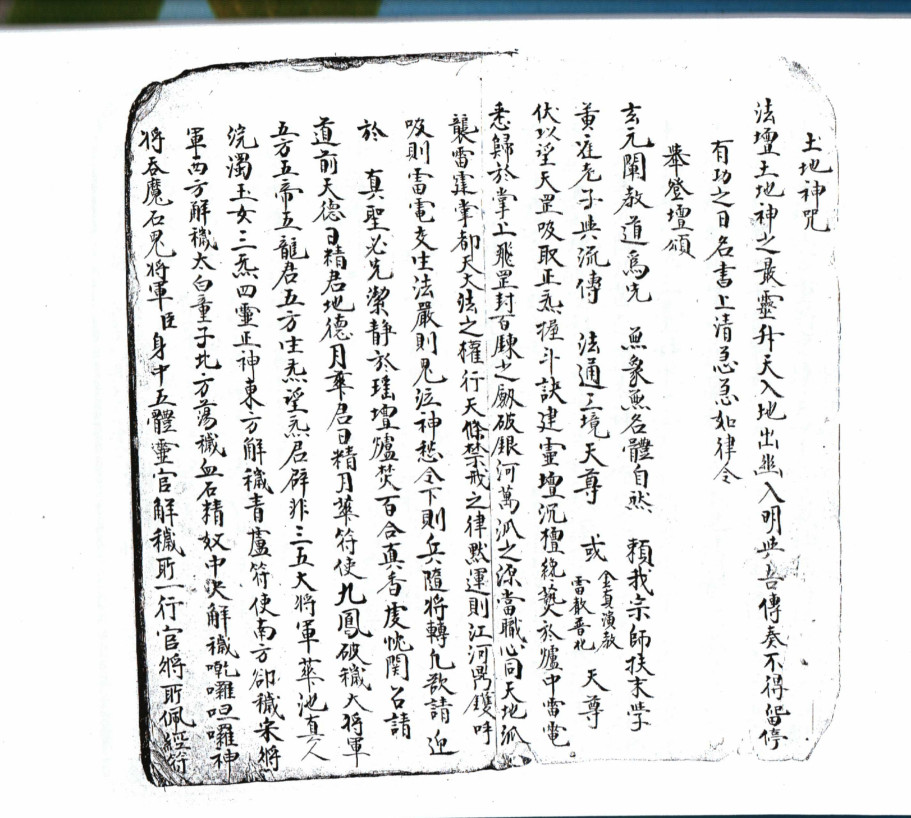 土地神咒
法壇土地神之最靈升天入地出幽入明與吾傳奏不得留停
有功之日名書上清急急如律令
舉登壇頌
玄元闡教道為先 無象無名體自然 賴我宗師扶末學
黃庭老子與流傳 法通三境天尊 或 金真演教 雷教普化 天尊
伏以望天罡吸取正炁握斗訣建靈壇沉檀纔爇於爐中雷電
悉歸於掌上飛罡封百 破銀河萬派之源當職心同天地派
襲雷霆掌都天大法之權行天條禁戒之律默運則江河 呼
吸則雷電交生法嚴則鬼泣神愁令下則兵隨將轉凡欲請 迎
於 真聖必先潔靜於瑤壇爐焚百合真香虔忱関召請
道前天德日精君地德月華君日精月華符使九鳳破穢大將軍
五方五帝五龍君五方生炁望炁君辟非三五大將軍華池真人
浣濁玉女三炁四靈正神東方解穢青蘆符使南方卻穢宋將
軍西方解穢太白童子北方蕩穢血石精奴中央解穢 囉呾囉神
將吞魔石鬼將軍臣身中五體靈官解穢所一行官將所佩經符